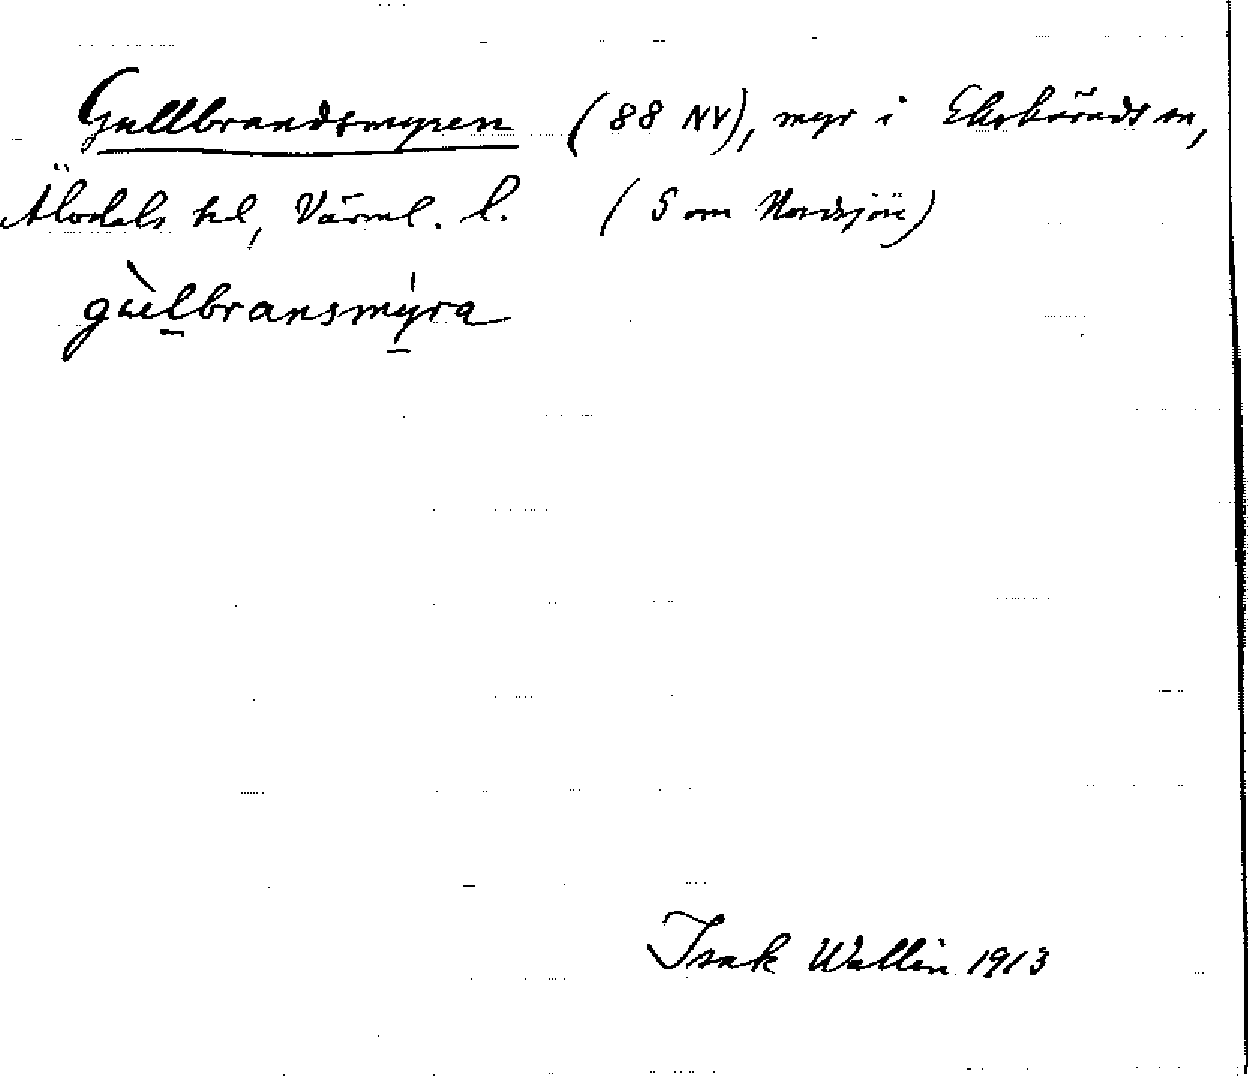 Gullbrandsmyren (88 NV), myr i Ekshärads sn,
Älvdals hd, Värml. l. (S om Nordsjön)
gùlbransmýra
Isak Wallin 1913